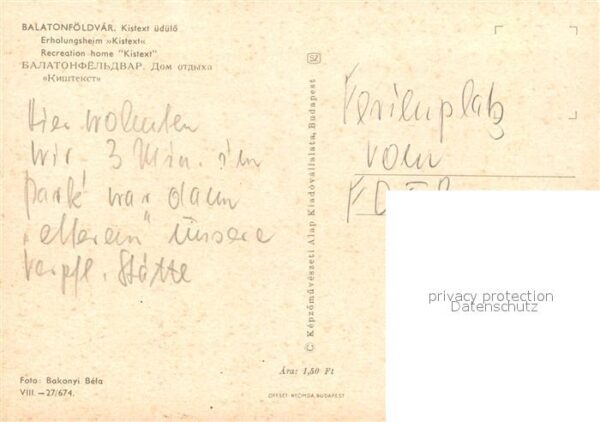 BALATONFÖLDVÁR. Kistext üdülő
Erholungsheim »Kistext«
Recreation home "Kistext"
БАЛАТОНФЁЛЬДВАР. Дом отдыха
«Киштекст»
Hier wohnten
wir. 3 Min. im
Park war dann
"etterem" unsere
Verpfl. Stätte
Ferienplatz
vom
Foto: Bakonyi Béla
VIII.—27/674.
© Képzőművészeti Alap Kiadóvállalata, Budapest
SZ
Ára: 1,50 Ft
OFFSET-NYOMDA, BUDAPEST
privacy protection
Datenschutz